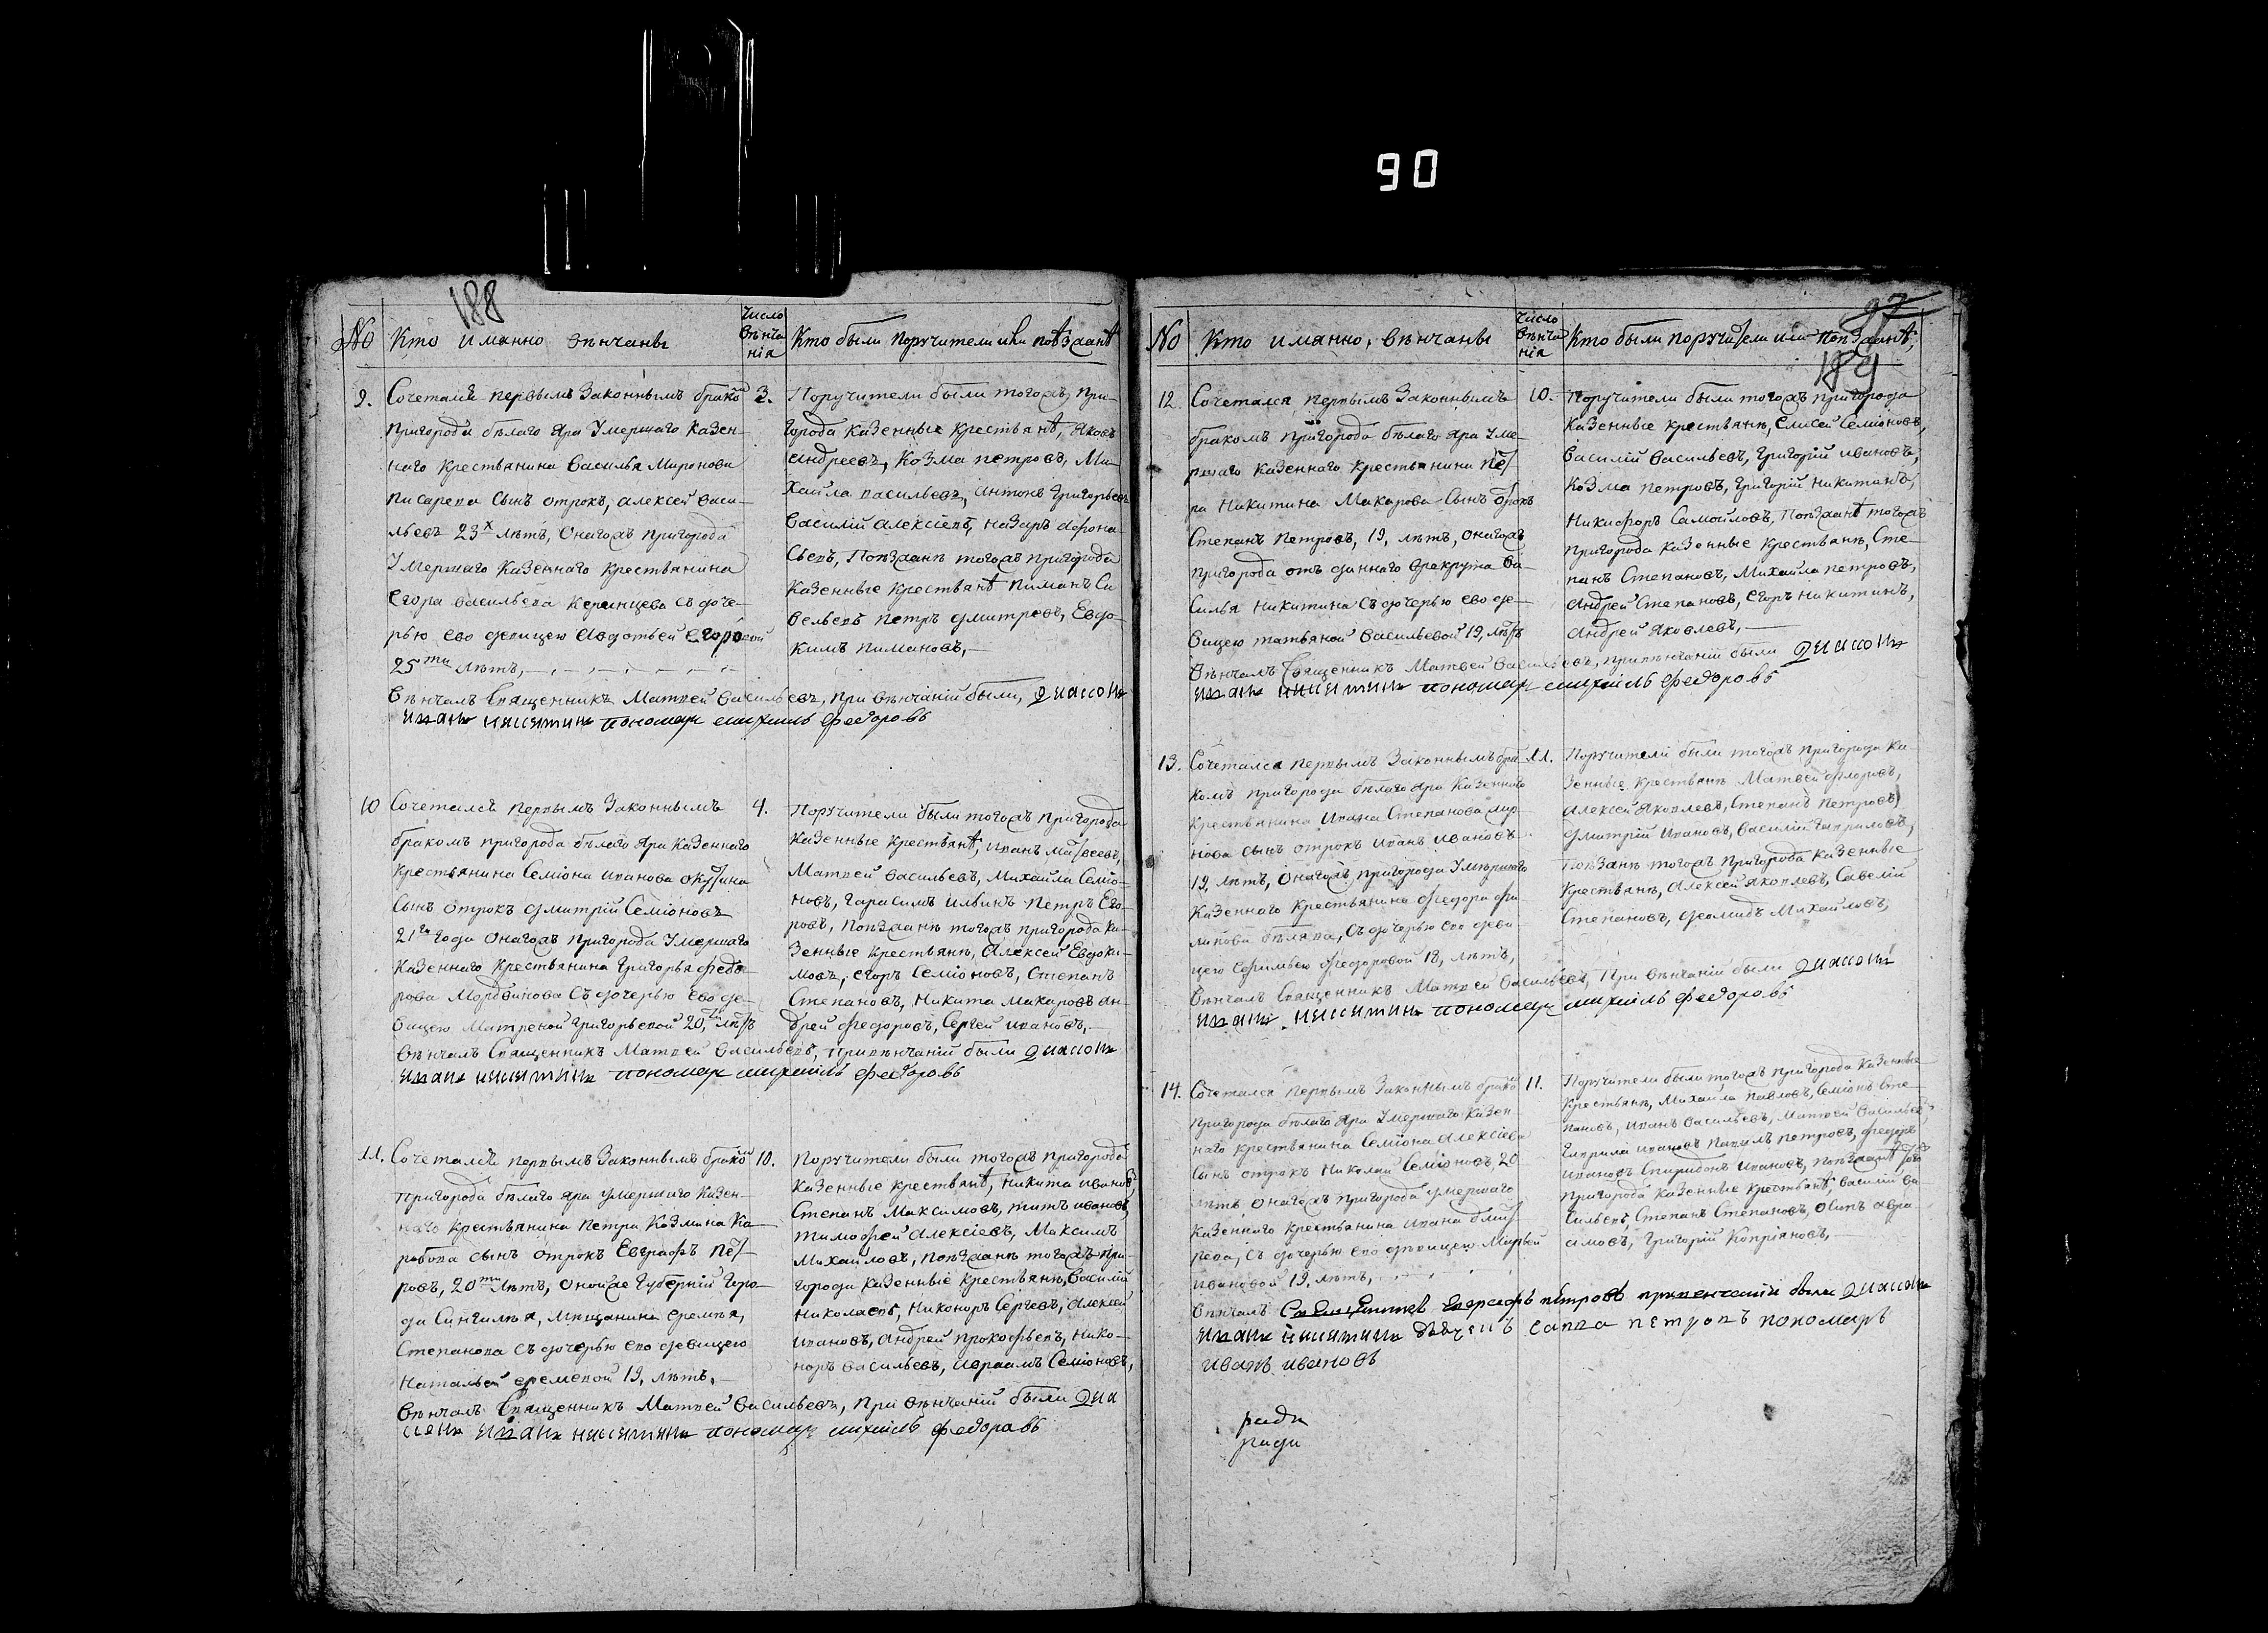 90
188
No Кто иманно венчаны
число венчания
Кто были поручители или поезжанѣ
9. Сочетался первымъ Законнымъ бракомъ
пригорода бѣлаго Яра Умершаго казен-
наго крестьянина Василья Миронова
писарева сынъ отрокъ, алексей Васи-
льевъ 23х лѣтъ, Онагожъ пригорода
Умершаго Казеннаго крестьянина
Егора васильева Керенцева съ доче-
рью его девицею Авдотьей Егоровой
25ти лѣтъ,
3. Поручители были тогожъ при-
города Казенные крестьянѣ, Яковъ
андреевъ, Козма петровъ, Ми-
хайла васильевъ, антонъ Григорьевъ
Василий алексѣевъ, назаръ афона-
сьевъ, Поезжанѣ тогожъ пригорода
казенные крестьянѣ Пиманъ Са-
вельевъ петръ дмитревъ, Евдо-
кимъ пимановъ,
Вѣнчалъ Священникъ Матвей Васильевъ, при вѣнчаніи были, диаконъ
иванъ никитинъ пономарь михаилъ федоровъ
10 Сочетался первымъ Законнымъ
бракомъ пригорода бѣлаго Яра казеннаго
крестьянина Семіона иванова окутина
сынъ отрокъ дмитрій Семіоновъ
21го года онагожъ пригорода Умершаго
казеннаго крестьянина Григорья федо-
рова Мордвинова съ дочерью ево де-
вицею Матреной Григорьевой 20ти лѣтъ
4. Поручители были тогожъ пригорода
казенные крестьянѣ, иванъ матвеевъ,
Матвей васильевъ, михайла Семіо-
новъ, Гарасимъ ильинъ петръ Его-
ровъ, поезжанѣ тогожъ пригорода ка-
зенные крестьянѣ, Алексей Евдоки-
мовъ, егоръ Семіоновъ, Степанъ
Степановъ, Никита макаровъ ан-
дрей федоровъ, Сергей ивановъ,
Вѣнчалъ Священникъ Матвей васильевъ, при вѣнчаніи были диаконъ
иванъ никитинъ пономарь михаилъ федоровъ
11. Сочетался первымъ Законнымъ бракомъ
пригорода бѣлаго яра умершаго казен-
наго крестьянина петра Козмина Ка-
рабова сынъ отрокъ Евграфъ пет-
ровъ, 20ти лѣтъ, оной же Губерніи Горо-
да Сингилея, мещанина еремея,
Степанова съ дочерью его девицею
Натальей еремевой 19, лѣтъ,
10. Поручители были тогожъ пригорода
казенные крестьянѣ, никита ивановъ,
Степанъ Максимовъ, титъ ивановъ,
тимофей алексіевъ, Максимъ
Михайловъ, поезжанѣ тогожъ при-
города казенные крестьянѣ, Василий
николаевъ, никоноръ Сергевъ, алексей
ивановъ, андрей прокофьевъ, нико-
норъ васильевъ, авраамъ Семіоновъ,
вѣнчалъ Священникъ Матвей васильевъ, при вѣнчаніи были диа
конъ иванъ никитинъ пономарь михаилъ федоравъ
97
189
No Кто иманно, вѣнчаны
число вѣнчания
Кто были поручители или поезжанѣ,
12 Сочетался первымъ Законнымъ
бракомъ пригорода бѣлаго яра уме-
ршаго казеннаго крестьянина пет-
ра Никитина Макарова сынъ отрокъ
Степанъ петровъ, 19, лѣтъ, онагожъ
пригорода отъ даннаго врекрута ва-
силья никитина съ дочерью ево де-
вицею татьяной васильевой 19, лѣтъ
10. Поручители были тогожъ пригорода
казенные крестьянѣ, Елисей Семіоновъ,
василий васильевъ, Григорій ивановъ,
козма петровъ, Григорій никитинъ,
никифоръ Самойловъ, Поезжанѣ тогожъ
пригорода казенные крестьянѣ, Сте-
панъ Степановъ, михайла петровъ,
андрей Степановъ, егоръ никитинъ,
андрей яковлевъ,
Вѣнчалъ Священникъ Матвей васильевъ, при вѣнчаніи были диаконъ
иванъ никитинъ пономарь михаилъ федоровъ
13. Сочетался первымъ Законнымъ бра-
комъ пригорода бѣлаго яра казеннаго
крестьянина ивана Степанова мир-
нова сынъ отрокъ иванъ ивановъ
19, лѣтъ, онагожъ пригорода Умершаго
казеннаго крестьянина федора фи-
липова бѣляева, съ дочерью его деви-
цею Ефимьею федоровой 18, лѣтъ,
11. Поручители были тогожъ пригорода ка-
зенные крестьянѣ Матвей флоровъ,
алексей яковлевъ, Степанъ петровъ,
дмитрій ивановъ, василий гавриловъ,
Поезжанѣ тогожъ пригорода казенные
крестьянѣ, алексей яковлевъ, Савелий
Степановъ, демидъ михайловъ,
Вѣнчалъ Священникъ Матвей васильевъ, При вѣнчаніи были диаконъ
иванъ никитинъ пономарь михаилъ федоровъ
14. Сочетался первымъ Законнымъ бракомъ
пригорода бѣлаго яра умершаго казен-
наго крестьянина Семіона алексіева
сынъ отрокъ николай Семіоновъ, 20
лѣтъ, онагожъ пригорода умершаго
казеннаго крестьянина ивана
съ дочерью его девицею Марьей
ивановой 19, лѣтъ,
11. Поручители были тогожъ пригорода казенные
крестьянѣ, михайла павловъ, Семіонъ Сте-
пановъ, иванъ васильевъ, матвей васильевъ,
Гаврила ивановъ павилъ петровъ, федоръ
ивановъ Спиридонъ ивановъ, поезжанѣ того
пригорода казенные крестьянѣ, василий ва-
сильевъ, Степанъ Степановъ, осипъ авра-
амовъ, григорій Копріяновъ,
Вѣнчалъ Священникъ петровъ при венчаніи были диаконъ
иванъ никитинъ дьячекъ савва петровъ пономарь
иванъ ивановъ
ради
ради